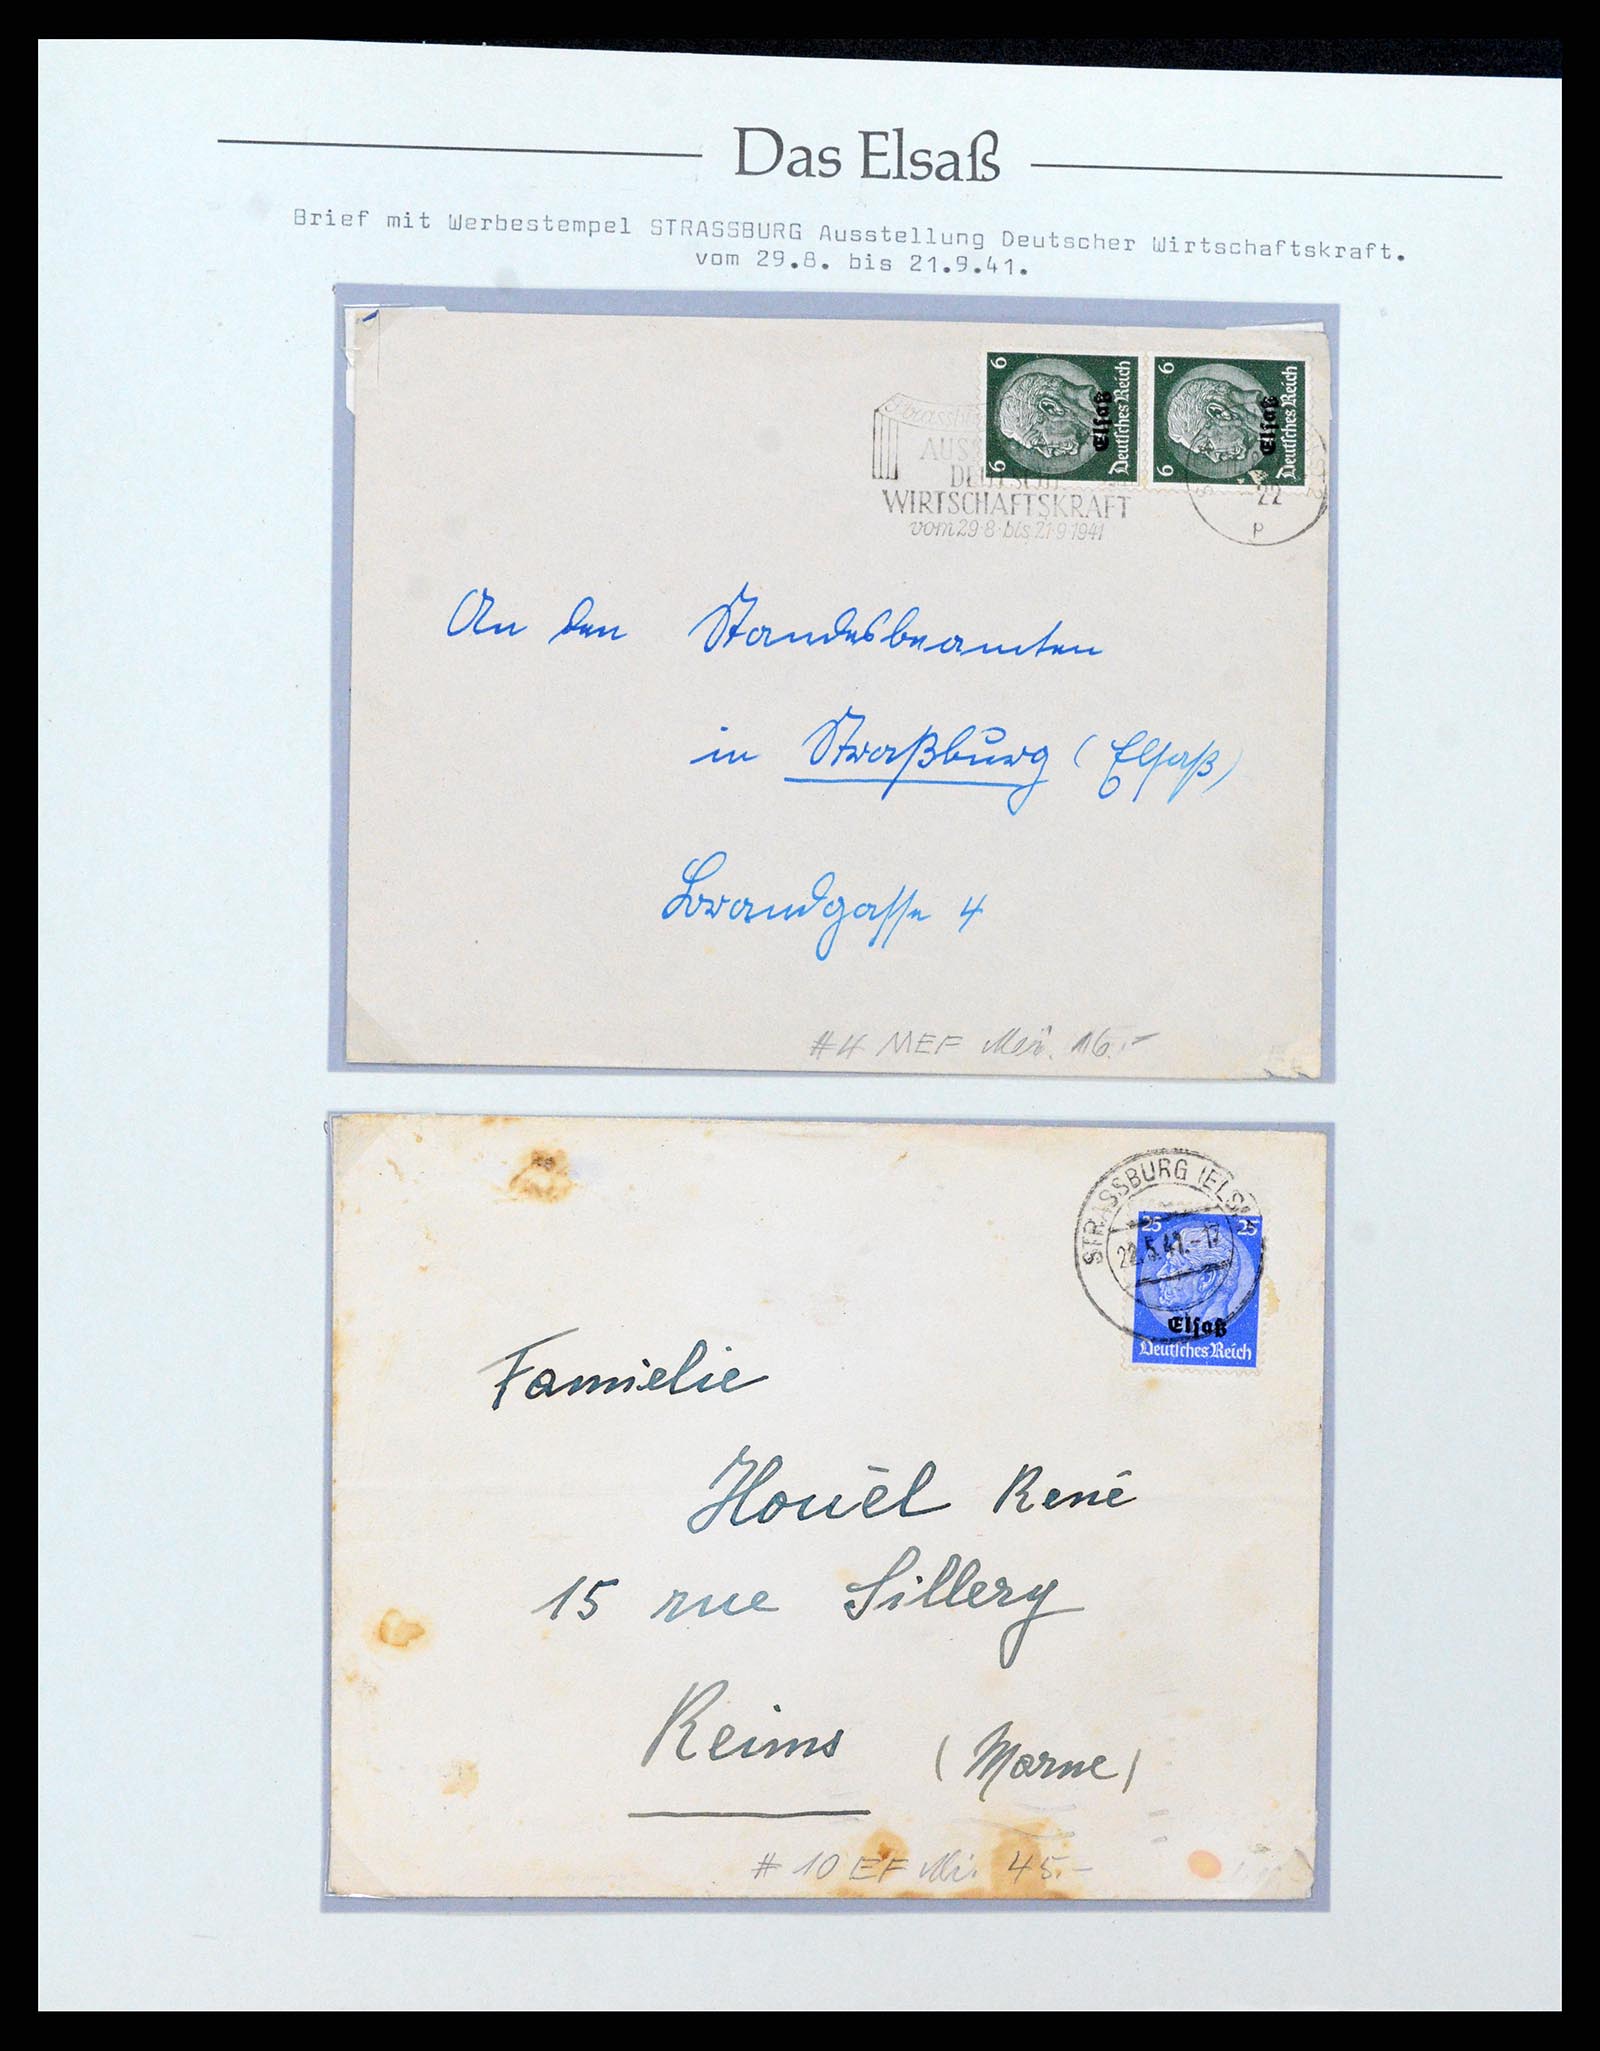 Das Elsaß
Brief mit Werbestempel STRASSBURG Ausstellung Deutscher Wirtschaftskraft.
vom 29.8. bis 21.9.41.
6 6
Deutsches Reich
Elsaß
6 6
Deutsches Reich
Elsaß
AUS
DEUTSCH
WIRTSCHAFTSKRAFT
vom 29·8· bis 21·9·1941
22
p
An den Standesbeamten
in Straßburg (Elsaß)
Brandgasse 4
#4 MEF Mi. 16.-
STRASSBURG (ELS
22.5.41.-17
25 25
Elsaß
Deutsches Reich
Famielie
Houël René
15 rue Sillery
Reims (Marne)
#10 EF Mi. 45.-